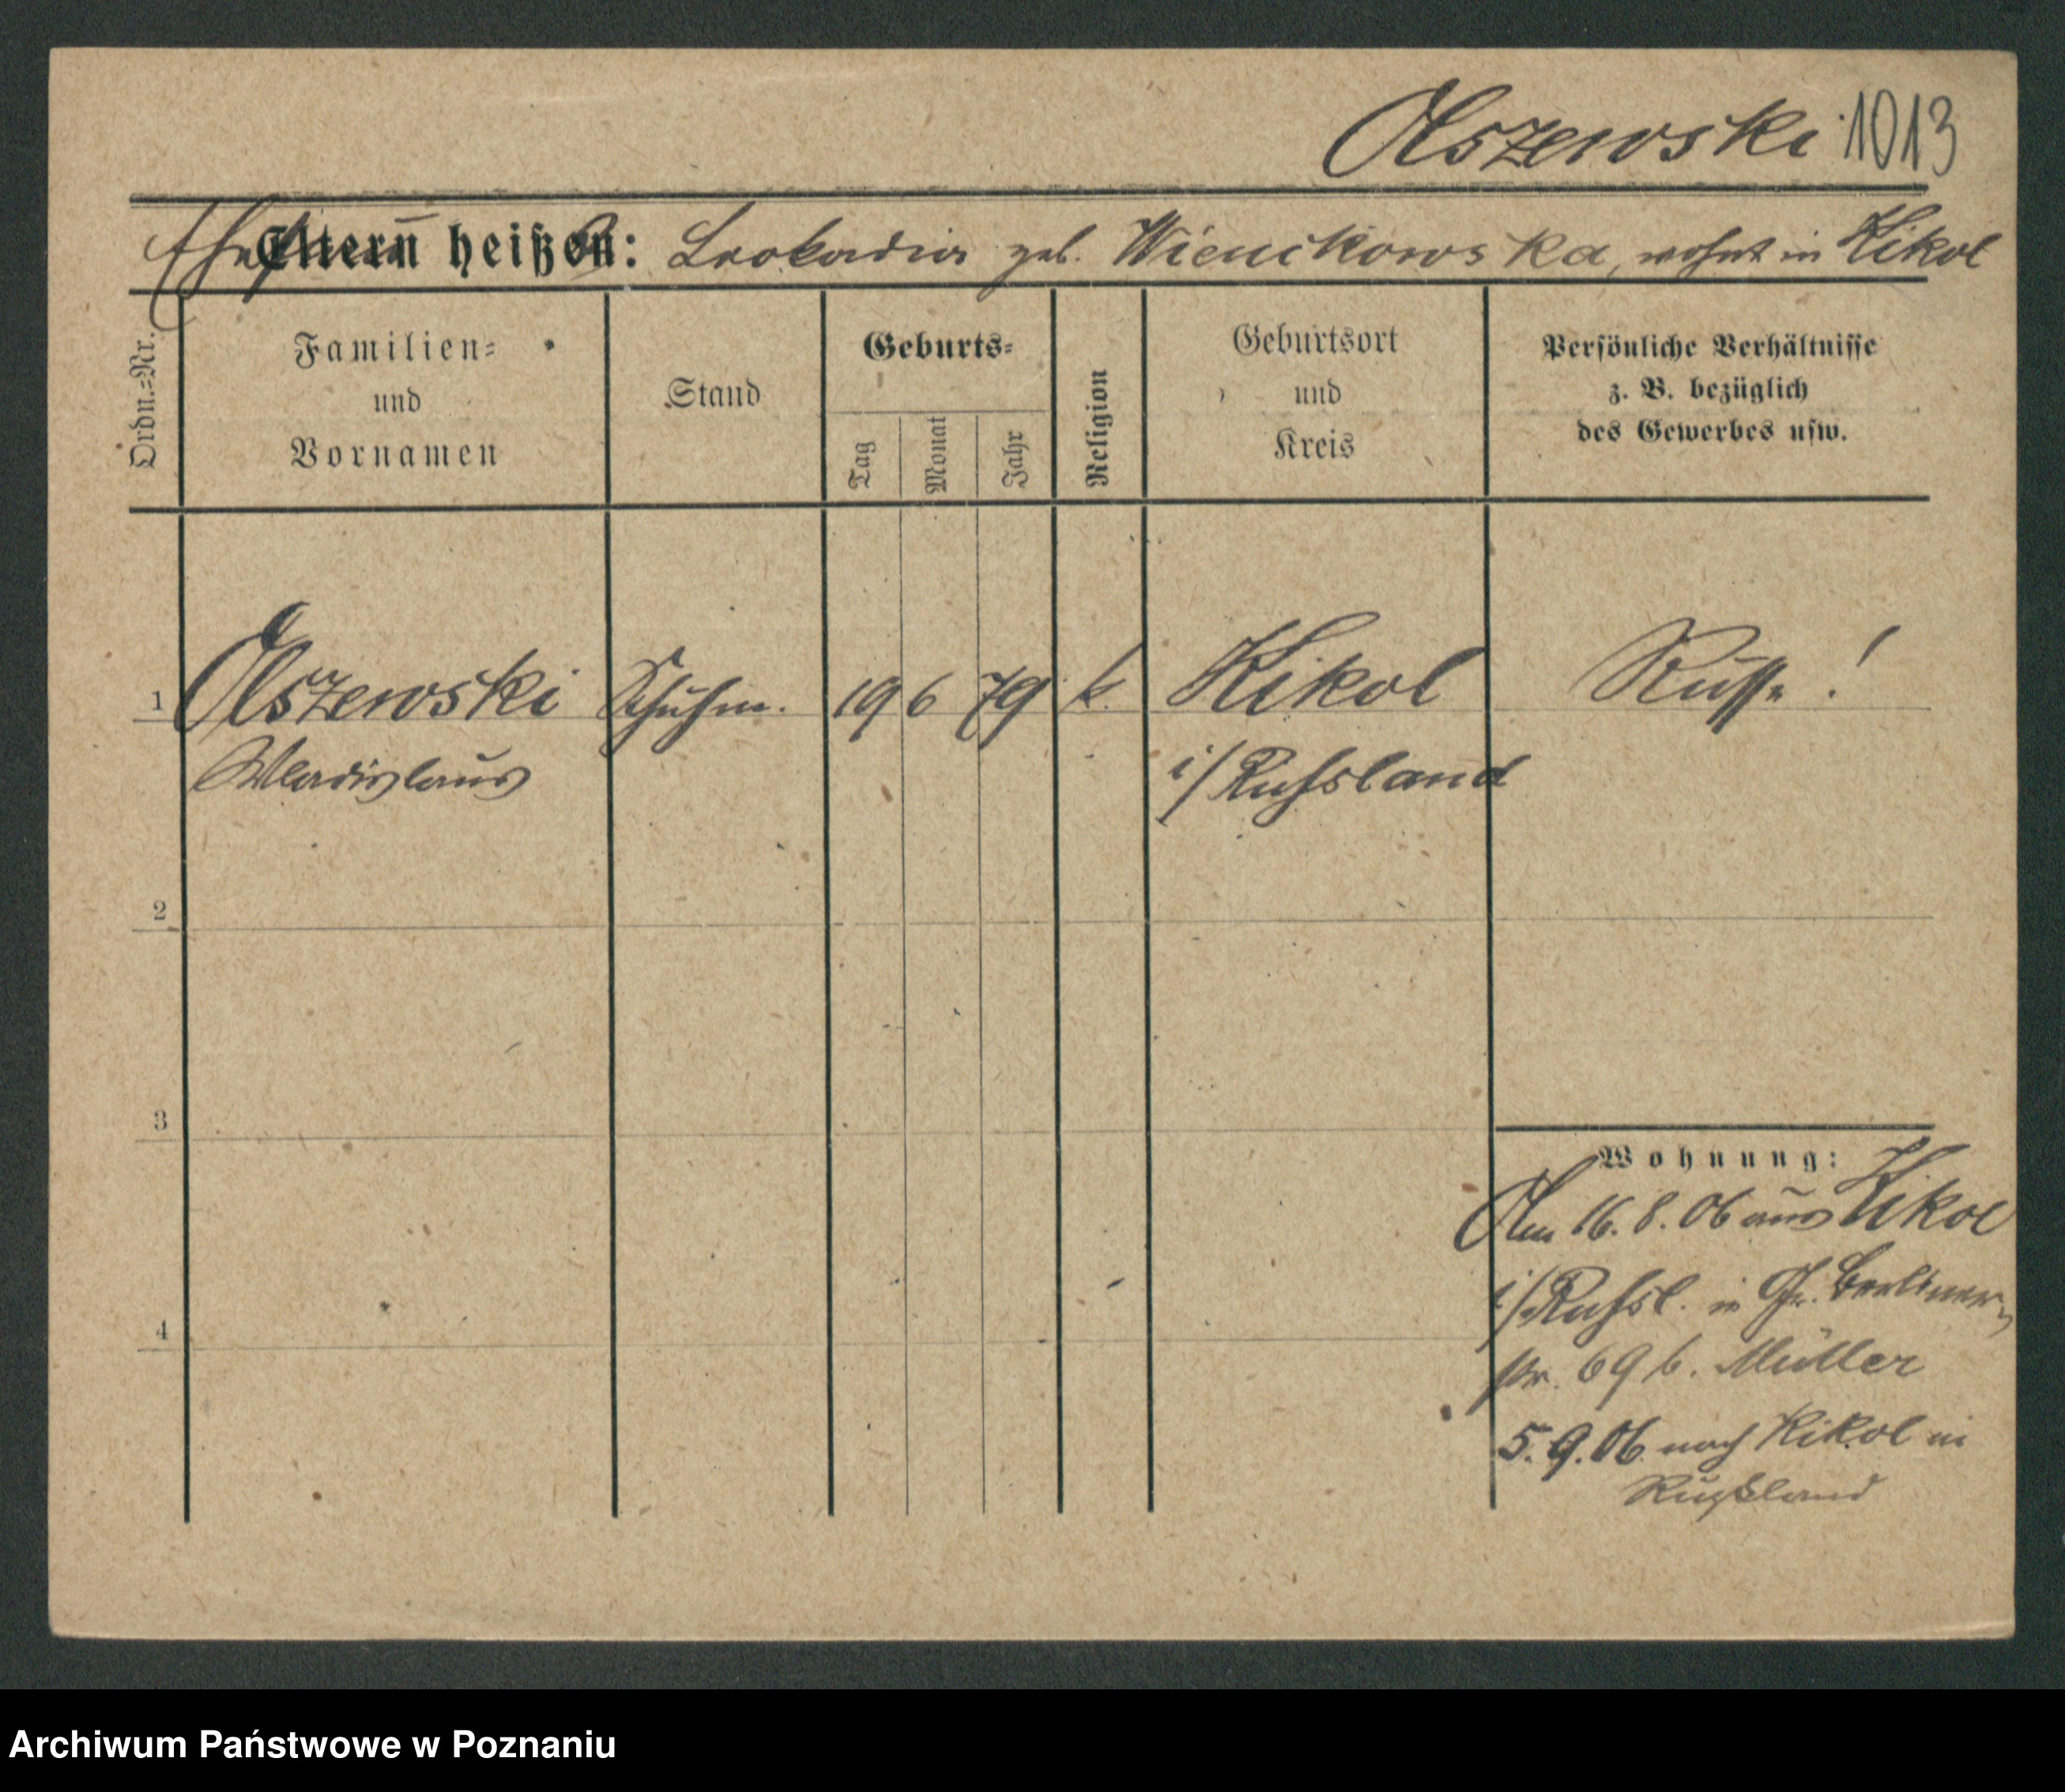 Olszewski 1013
Ehefrau Eltern heißen: Leokadia geb. Wienckowska, wohnt in Kikol
Ordn.=Nr.
Familien=
und
Vornamen
Stand
Geburts=
Tag
Monat
Jahr
Religion
Geburtsort
und
Kreis
Persönliche Verhältnisse
z. B. bezüglich
des Gewerbes usw.
1 Olszewski Schuhm. 19 6 79 k. Kikol Russe!
Wladislaus i/Russland
2
3
Wohnung:
Am 16.8.06 aus Kikol
i/Russl. in Gr. Berliner-
4
str. 69 b. Müller
5.9.06 nach Kikol in
Rußland
Archiwum Państwowe w Poznaniu